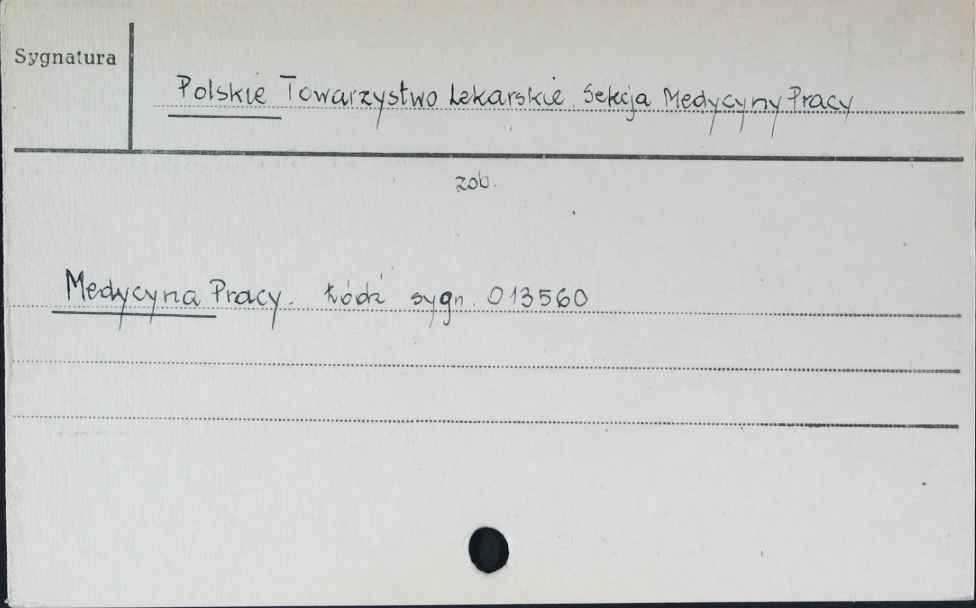 Sygnatura
Polskie Towarzystwo Lekarskie. Sekcja Medycyny Pracy
zob.
Medycyna Pracy. Łódź sygn. 013560